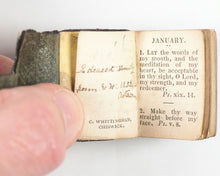 C. WHITTINGHAM,
CHISWICK.
JANUARY.
1. LET the words of
my mouth, and the
meditation of my
heart, be acceptable
in thy sight, O Lord,
my strength, and my
redeemer.
Ps. xix. 14.
2. Make thy way
straight before my
face. Ps. v. 8.